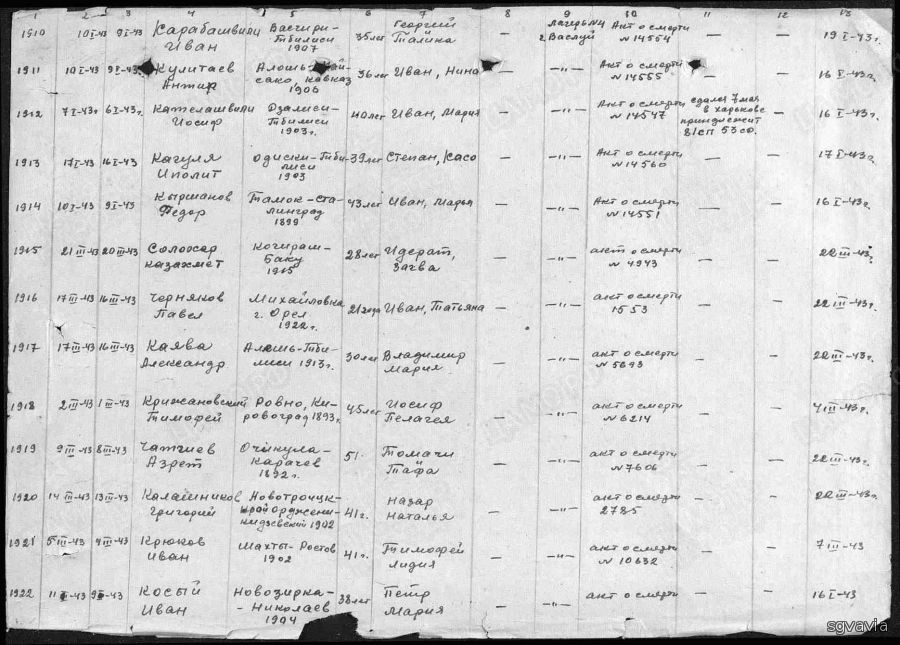 1 2 3 4 5 6 7 8 9 10 11 12 13
1910 10 I-43 9 I-43 Карабашвили Иван Васчири-Тбилиси 1907 35 лет Георгий Талина — лагерь №4 г. Васлуй Акт о смерти №14554 — — 19 I-43 г.
1911 10 I-43 9 I-43 Кулитаев Антир Алошь- сако, кавказ 1906 36 лет Иван, Нина — —"— Акт о смерти №14555 — 16 I-43 г.
1912 7 I-43 г 6 I-43 г. Кателашвили Иосиф Дзалиси-Тбилиси 1903 г. 40 лет Иван, Мария — —"— Акт о смерти №14547 сдался 7 мая в Харькове принадлежит 81 сп 53 сд. — 16 I-43 г.
1913 17 I-43 16 I-43 Кагуля Иполит Одиски-Тбилиси 1903 39 лет Степан, Касо — —"— Акт о смерти №14560 — — 17 I-43 г.
1914 10 I-43 9 I-43 Кыршанов Федор Тамок-Сталинград 1899 43 лет Иван, Марья — —"— Акт о смерти №14551 — — 16 I-43 г.
1915 21 III-43 20 III-43 Солоосар Казахмет Кочирам-Баку 1915 28 лет Идерат, Загва — —"— акт о смерти №4943 — — 22 III-43 г.
1916 17 III-43 16 III-43 Черняков Павел Михайловка г. Орел 1922 г. 21 года Иван, Татьяна — —"— акт о смерти 1553 — — 22 III-43 г.
1917 17 III-43 16 III-43 Каява Александр Алешь-Тбилиси 1913 г. 30 лет Владимир Мария — —"— акт о смерти №5693 — — 22 III-43 г.
1918 2 III-43 1 III-43 Крижановский Тимофей Ровно, Кировоград 1893 г. 45 лет Иосиф Пелагея — —"— акт о смерти №6214 — — 4 III-43 г.
1919 9 III-43 8 III-43 Чатчиев Азрет Очикула-Карачев 1892 г. 51. Томачи Тафа — —"— акт о смерти №7606 — — 22 III-43 г.
1920 14 III-43 13 III-43 Калашников Григорий Новотроицк- край орджоникидзевский 1902 41 г. Назар Наталья — —"— акт о смерти 2785 — — 22 III-43 г.
1921 5 III-43 4 III-43 Крюков Иван Шахты-Ростов 1902 41 г. Тимофей Лидия — —"— акт о смерти №10632 — — 7 III-43
1922 9 -43 Косый Иван Новозирка-Николаев 1904 38 лет Петр Мария — —"— акт о смерти — — 16 I-43
sgvavia